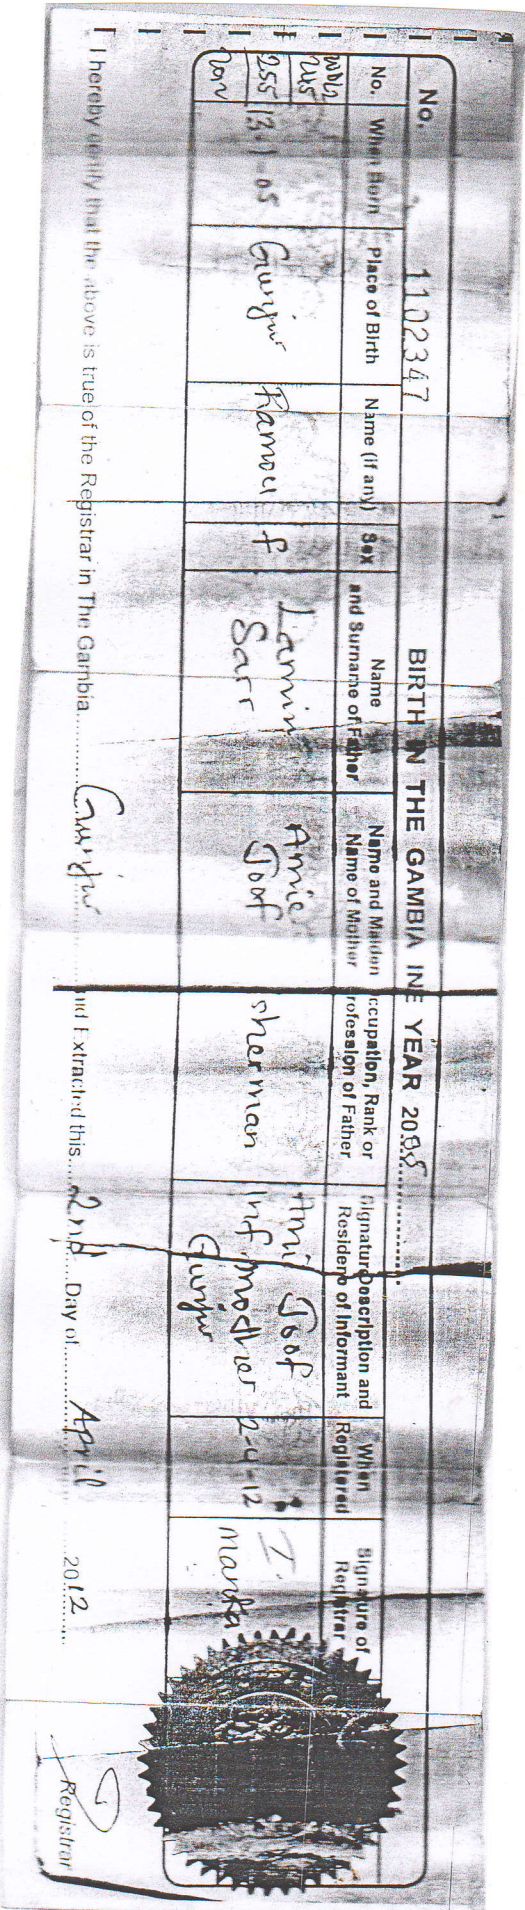 No. 1102347
BIRTH IN THE GAMBIA IN E YEAR 2005
No.
When Born
Place of Birth
Name (if any)
Sex
Name
and Surname of Father
Name and Maiden
Name of Mother
ccupation, Rank or
rofession of Father
Signature Description and
Residence of Informant
When
Registered
Signature of
Registrar
215
255
2012
13-1-05
Gunjur
Ramou
f
Lamin
Sarr
Amie
Joof
sherman
Ami Joof
Inf mother
Gunjur
2-4-12
I.
Manka
I hereby certify that the above is true of the Registrar in The Gambia Gunjur nd Extracted this 2nd Day of April 2012
Registrar